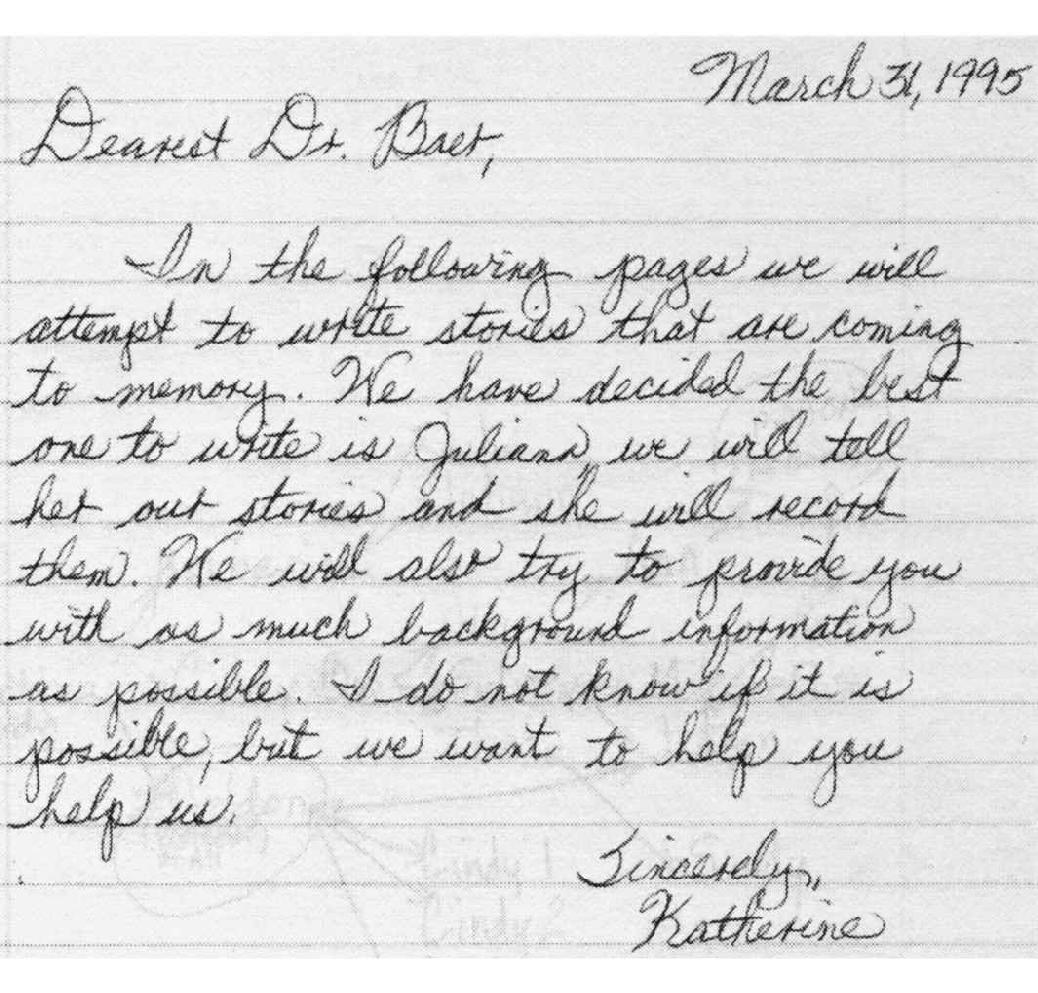 March 31, 1995
Dearest Dr. Baer,
In the following pages we will
attempt to write stories that are coming
to memory. We have decided the best
one to write is Juliann, we will tell
her our stories and she will record
them. We will also try to provide you
with as much background information
as possible. I do not know if it is
possible, but we want to help you
help us.
Sincerely,
Katherine
Cindy 1
Cindy 2